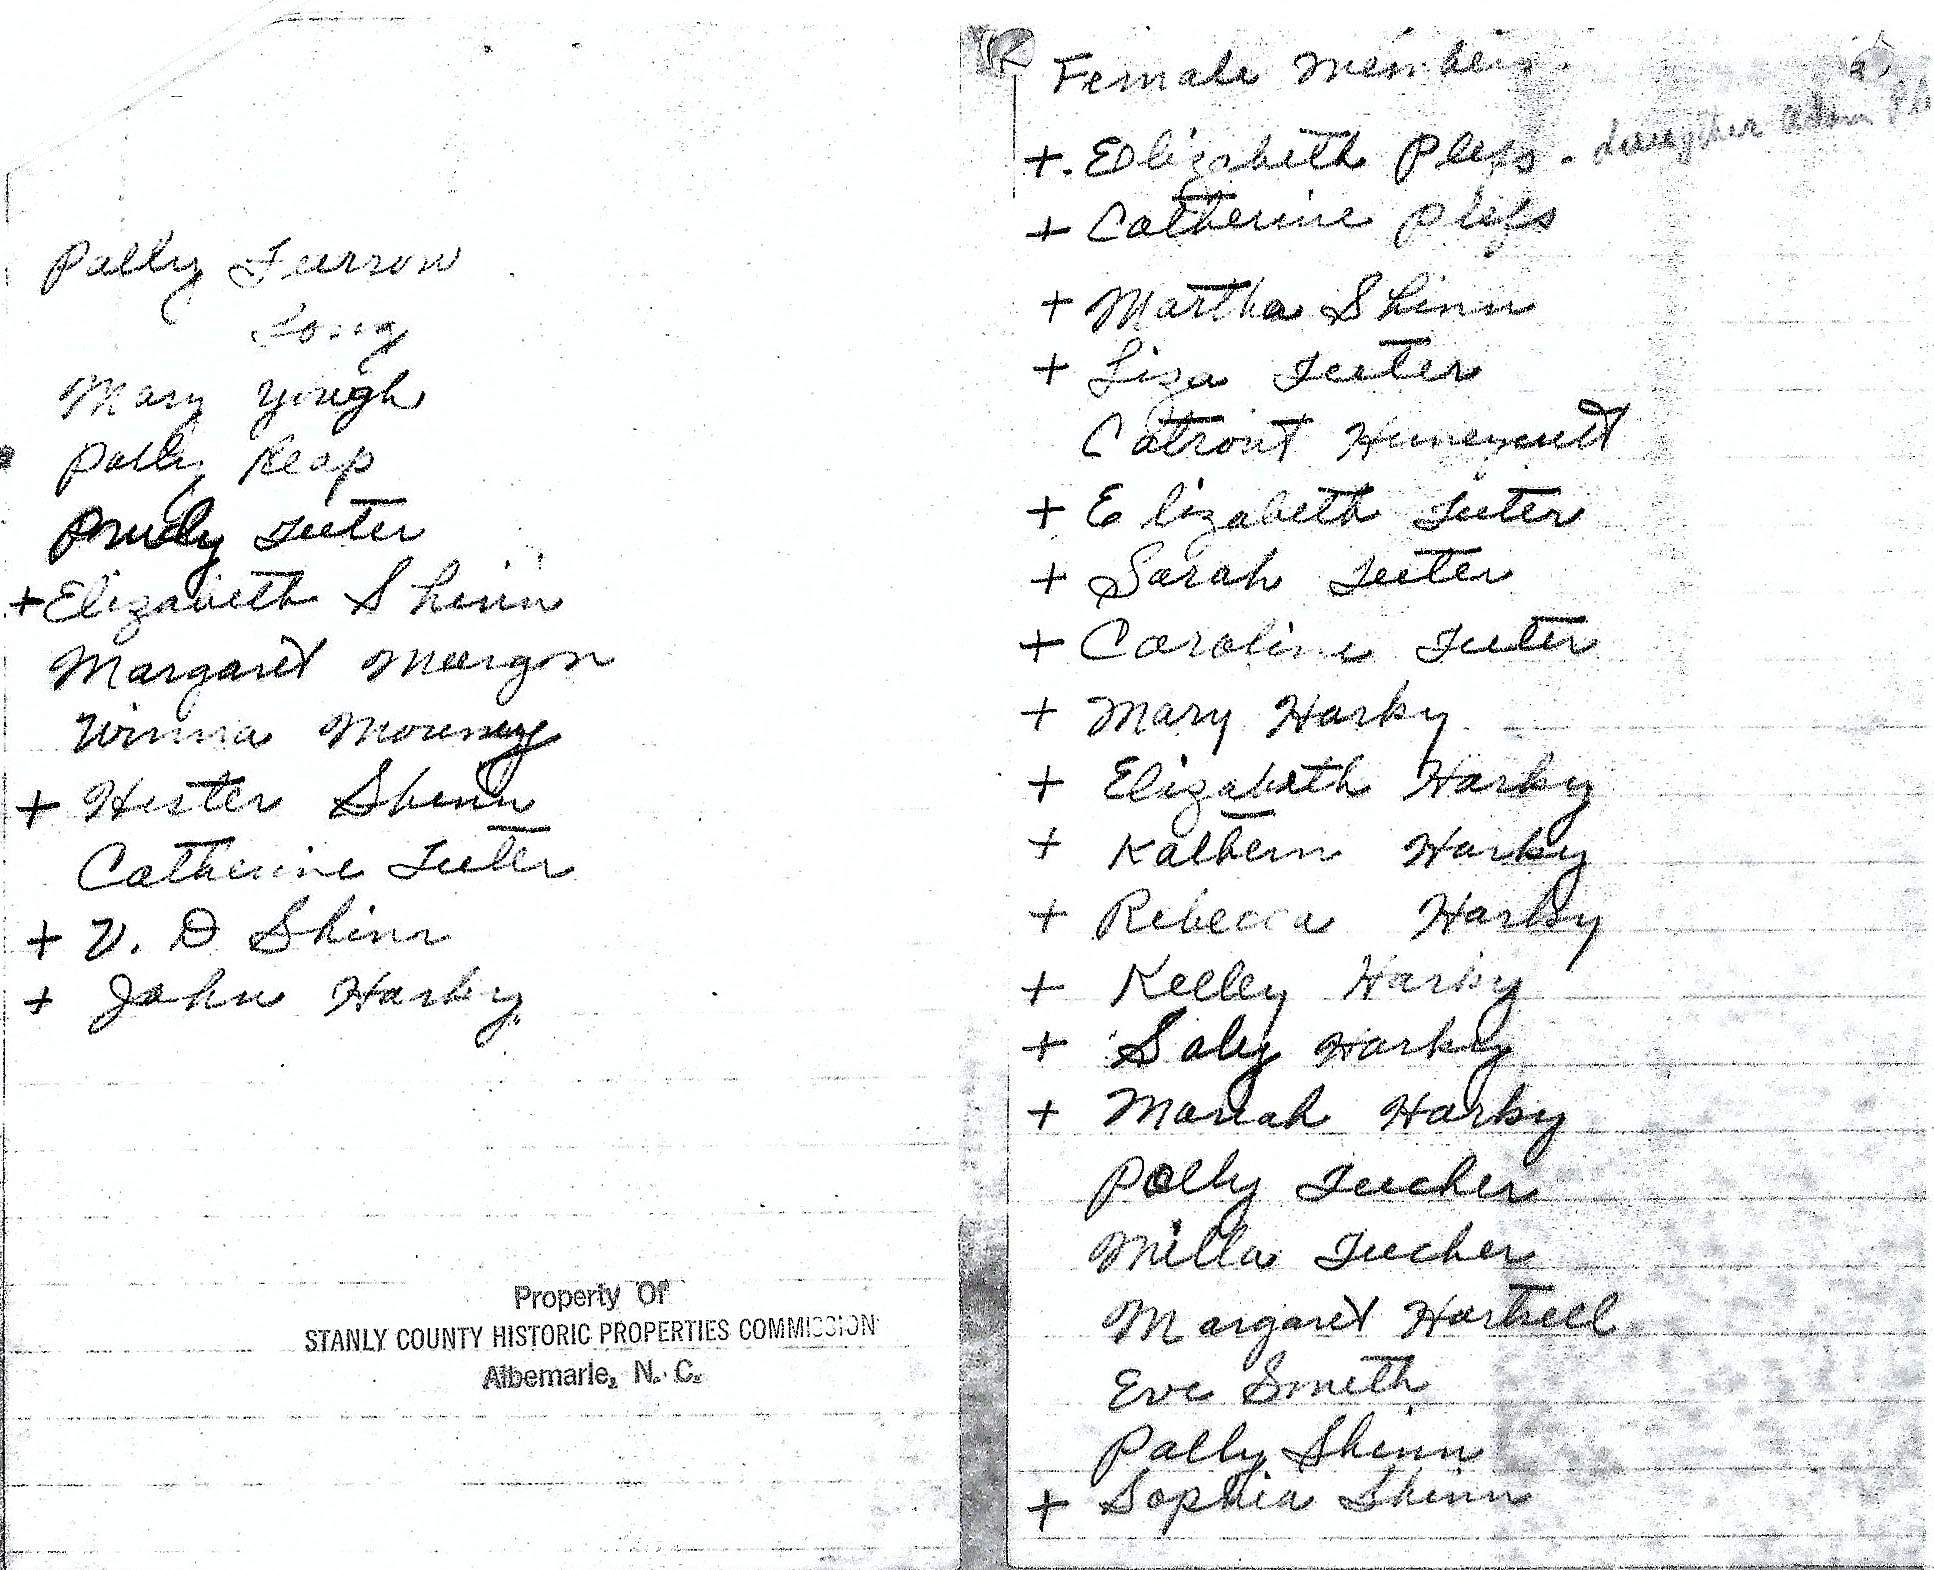 Polly Furrow
Long
Mary Yough
Polly Reap
Prudy Teeter
+ Elizabeth Shinn
Margaret Morgon
Winna Mourney
+ Hester Shinn
Catherine Teeter
+ V. D Shinn
+ John Harky
Property Of
STANLY COUNTY HISTORIC PROPERTIES COMMISSION
Albemarle, N. C.
Female Members
+. Elizabeth Pless - daughter Adam
+ Catherine Pless
+ Martha Shinn
+ Liza Teeter
Catront Huneycutt
+ Elizabeth Teeter
+ Sarah Teeter
+ Caroline Teeter
+ Mary Harky
+ Elizabeth Harky
+ Kathern Harky
+ Rebecca Harky
+ Kelley Harky
+ Saly Harky
+ Mariah Harky
Polly Tucker
Milla Tucker
Margaret Hartsell
Eve Smith
Polly Shinn
+ Sophia Shinn